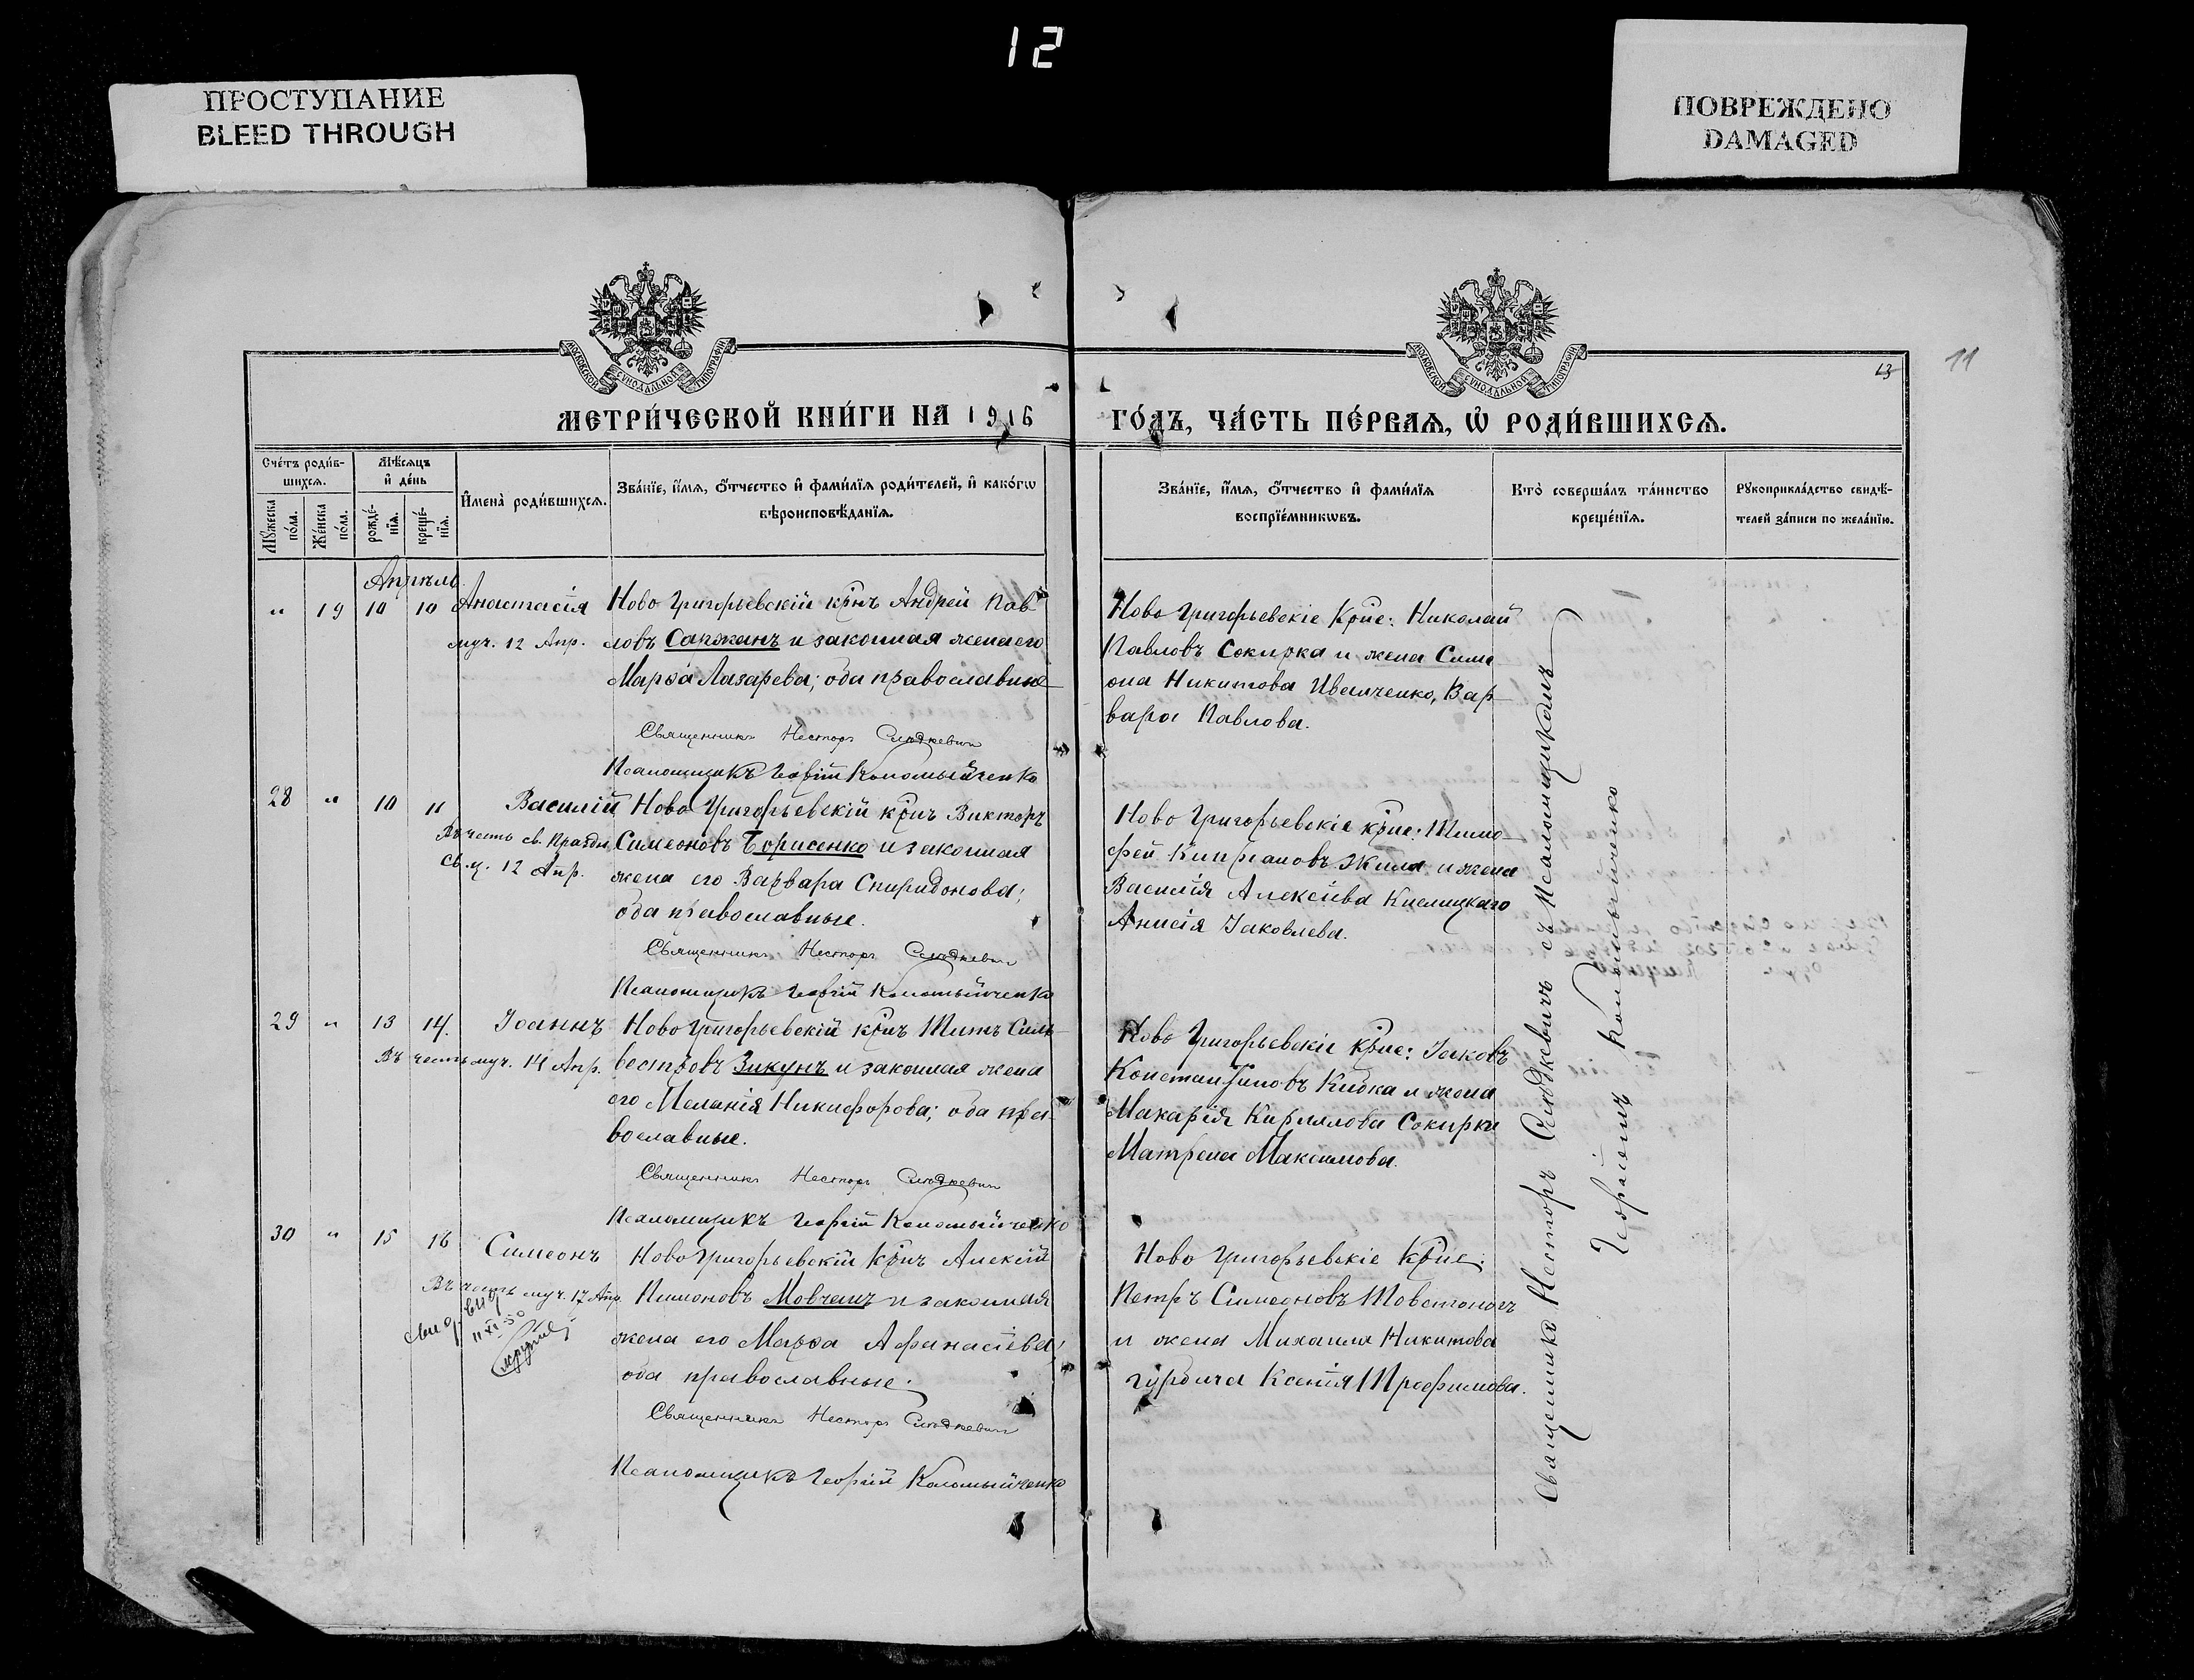 12
ПРОСТУПАНИЕ
BLEED THROUGH
ПОВРЕЖДЕНО
DAMAGED
МОСКОВСКОЙ СУНОДАЛЬНОЙ ТИПОГРАФІИ
МОСКОВСКОЙ СУНОДАЛЬНОЙ ТИПОГРАФІИ
13
11
МЕТРИ́ЧЕСКОЙ КНИ́ГИ НА 1916
ГО́ДЪ, ЧА́СТЬ ПЕ́РВАѦ, Ѡ҆ РОДИ́ВШИХСѦ.
Сче́тъ роди́в-
шихсѧ.
Мѣ́сѧцъ
и҆ де́нь
Мꙋ́жеска
по́ла.
Же́нска
по́ла.
рожде́-
нїѧ.
креще́-
нїѧ.
И҆мена̀ роди́вшихсѧ.
Зва́нїе, и҆́мѧ, ѻ҆́тчество и҆ фами́лїѧ роди́телей, и҆ како́гѡ
вѣроисповѣ́данїѧ.
Зва́нїе, и҆́мѧ, ѻ҆́тчество и҆ фами́лїѧ
воспрїе́мникѡвъ.
Кто̀ соверша́лъ та́инство
креще́нїѧ.
Рꙋкоприкла́дство свидѣ́-
телей за́писи по жела́нїю.
Апрѣль
" 19 10 10 Анастасія
муч. 12 Апр.
Ново Григорьевскій крнъ Андрей Пав-
ловъ Санжанъ и законная жена его
Марѳа Лазарева; оба православные
Священникъ Несторъ Слюдкевичъ
Псаломщикъ Георгій Коломыйченко
Ново Григорьевскіе Крне: Николай
Павловъ Сокирка и жена Симе
она Никитова Иванченко, Вар
вара Павлова.
28 " 10 11 Василій
Въ честь св. Праздн.
св. м. 12 Апр.
Ново Григорьевскій крнъ Викторъ
Симеоновъ Борисенко и законная
жена его Варвара Спиридонова;
оба православные.
Священникъ Несторъ Слюдкевичъ
Псаломщикъ Георгій Коломыйченко
Ново Григорьевскіе крне: Тимо-
фей Кипріановъ Жила и жена
Василія Алексіева Кислицкаго
Анисія Іаковлева.
29 " 13 14. Іоаннъ
Въ честь муч. 14 Апр.
Ново Григорьевскій крнъ Титъ Силь
вестровъ Зикунъ и законная жена
его Меланія Никифорова; оба пра-
вославные.
Священникъ Несторъ Слюдкевичъ
Псаломщикъ Георгій Коломыйченко
Ново Григорьевскіе крне: Іаковъ
Константиновъ Кибка и жена
Макарія Кириллова Сокирки
Матрена Максимова.
30 " 15 16 Симеонъ
Въ честь муч. 17 Апр.
11 XI-50
Ново Григорьевскій Крнъ Алексій
Пимоновъ Мовчанъ и законная
жена его Марѳа Афанасіева;
оба православные.
Священникъ Несторъ Слюдкевичъ
Псаломщикъ Георгій Коломыйченко
Ново Григорьевскіе Крне:
Петръ Симеоновъ Товстоногъ
и жена Михаила Никитова
Ксенія Трофимова.
Священникъ Несторъ Слюдкевичъ съ Псаломщикомъ
Георгіемъ Коломыйченко